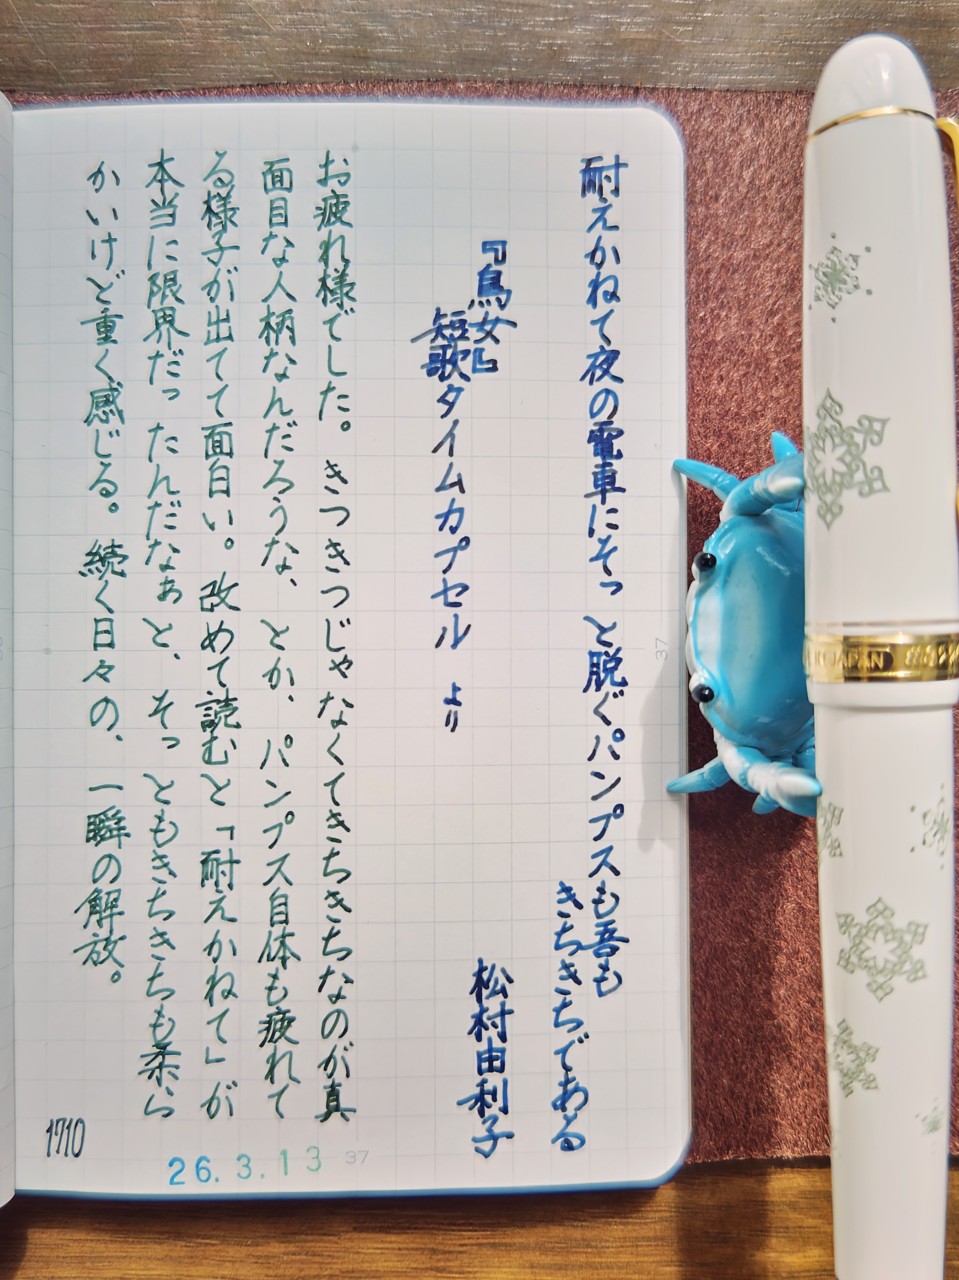 耐えかねて夜の電車にそっと脱ぐパンプスも吾も
きちきちである
『鳥女』
短歌タイムカプセル より
松村由利子
お疲れ様でした。きつきつじゃなくてきちきちなのが真
面目な人柄なんだろうな、とか、パンプス自体も疲れて
る様子が出てて面白い。改めて読むと「耐えかねて」が
本当に限界だったんだなぁと、そっともきちきちも柔ら
かいけど重く感じる。続く日々の、一瞬の解放。
1710
26.3.13
37
37
JAPAN